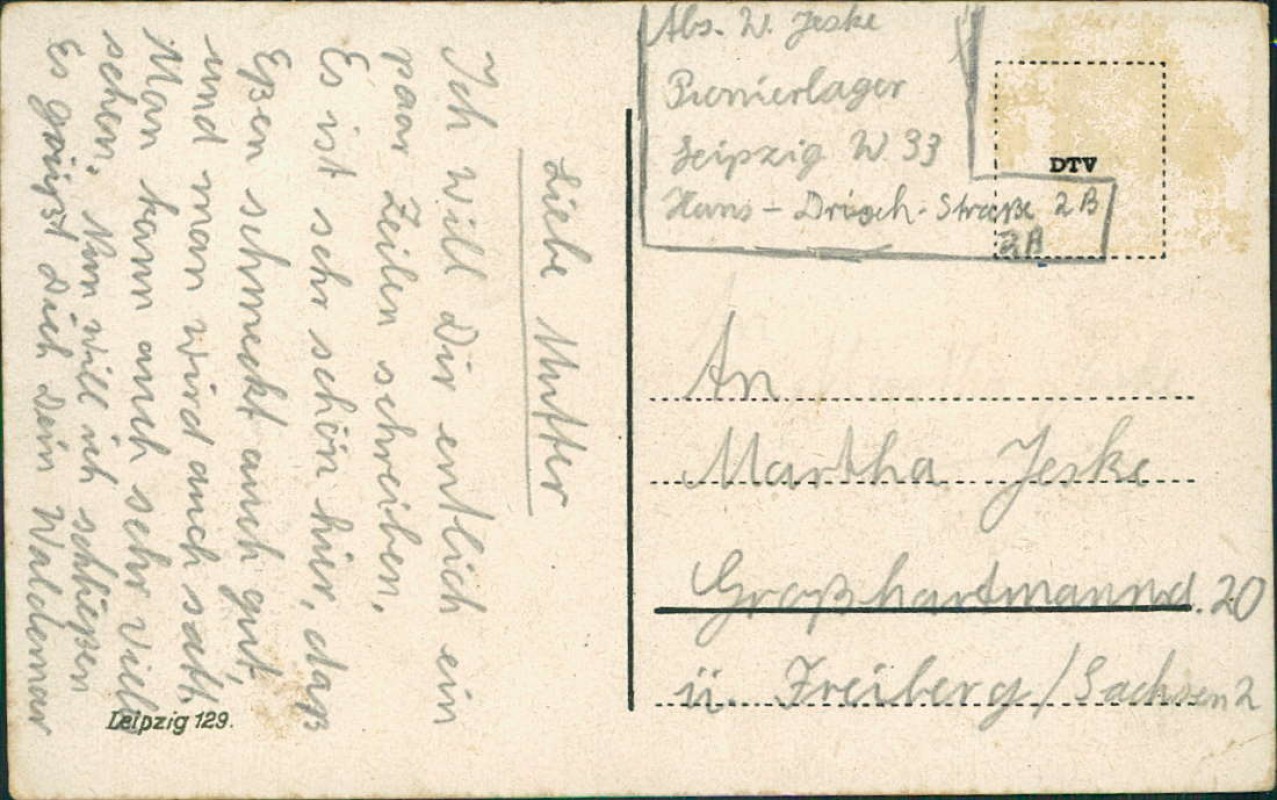 Liebe Mutter
Ich will Dir entlich ein
paar Zeilen schreiben,
Es ist sehr schön hier, daß
Eßen schmeckt auch gut,
und man wird auch satt,
Man kann auch sehr viel
sehen, Nun will ich schließen
Es grüßt Dich Dein Waldemar
Leipzig 129.
Abs. W. Jeske
Pionierlager
Leipzig W 33
Hans - Driesch - Straße 2B
2A
DTV
An
Martha Jeske
Großhartmannd. 20
ü. Freiberg / Sachsen 2